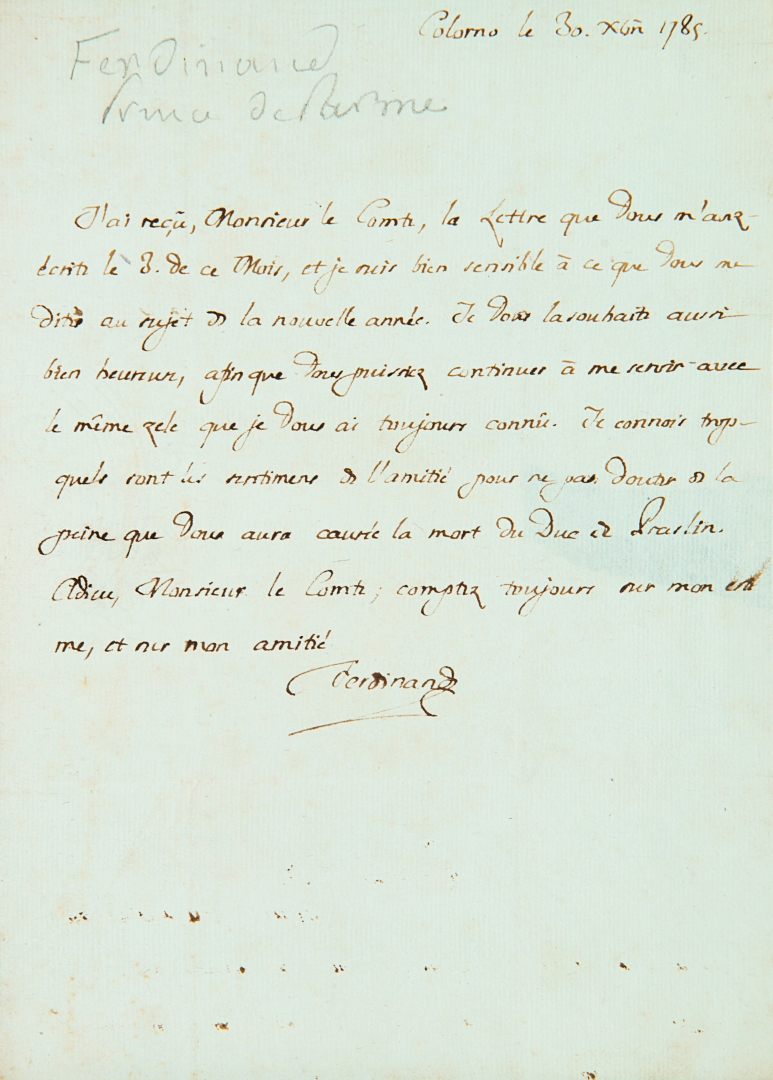 Colorno le 30. Xbre 1785.
Ferdinand
Prince de Parme
J'ai reçu, Monsieur le Comte, la Lettre que Vous m'avez
écrite le 3. de ce Mois, et je suis bien sensible à ce que Vous me
dites au sujet de la nouvelle année. Je Vous la souhaite aussi
bien heureuse, afin que Vous puissiez continuer à me servir avec
le même zele que je Vous ai toujours connû. Je connois trop
quels sont les sentimens de l'amitié pour ne pas douter de la
peine que Vous aura causée la mort du Duc de Praslin.
Adieu, Monsieur le Comte; comptez toujours sur mon esti
me, et sur mon amitié
Ferdinand